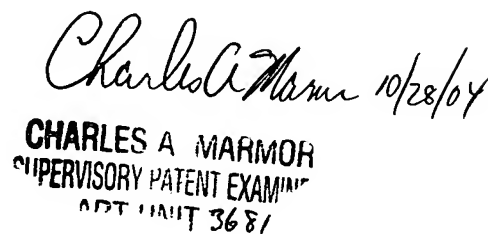 Charles A Marmor 10/28/04
CHARLES A MARMOR
SUPERVISORY PATENT EXAMINER
ART UNIT 3681